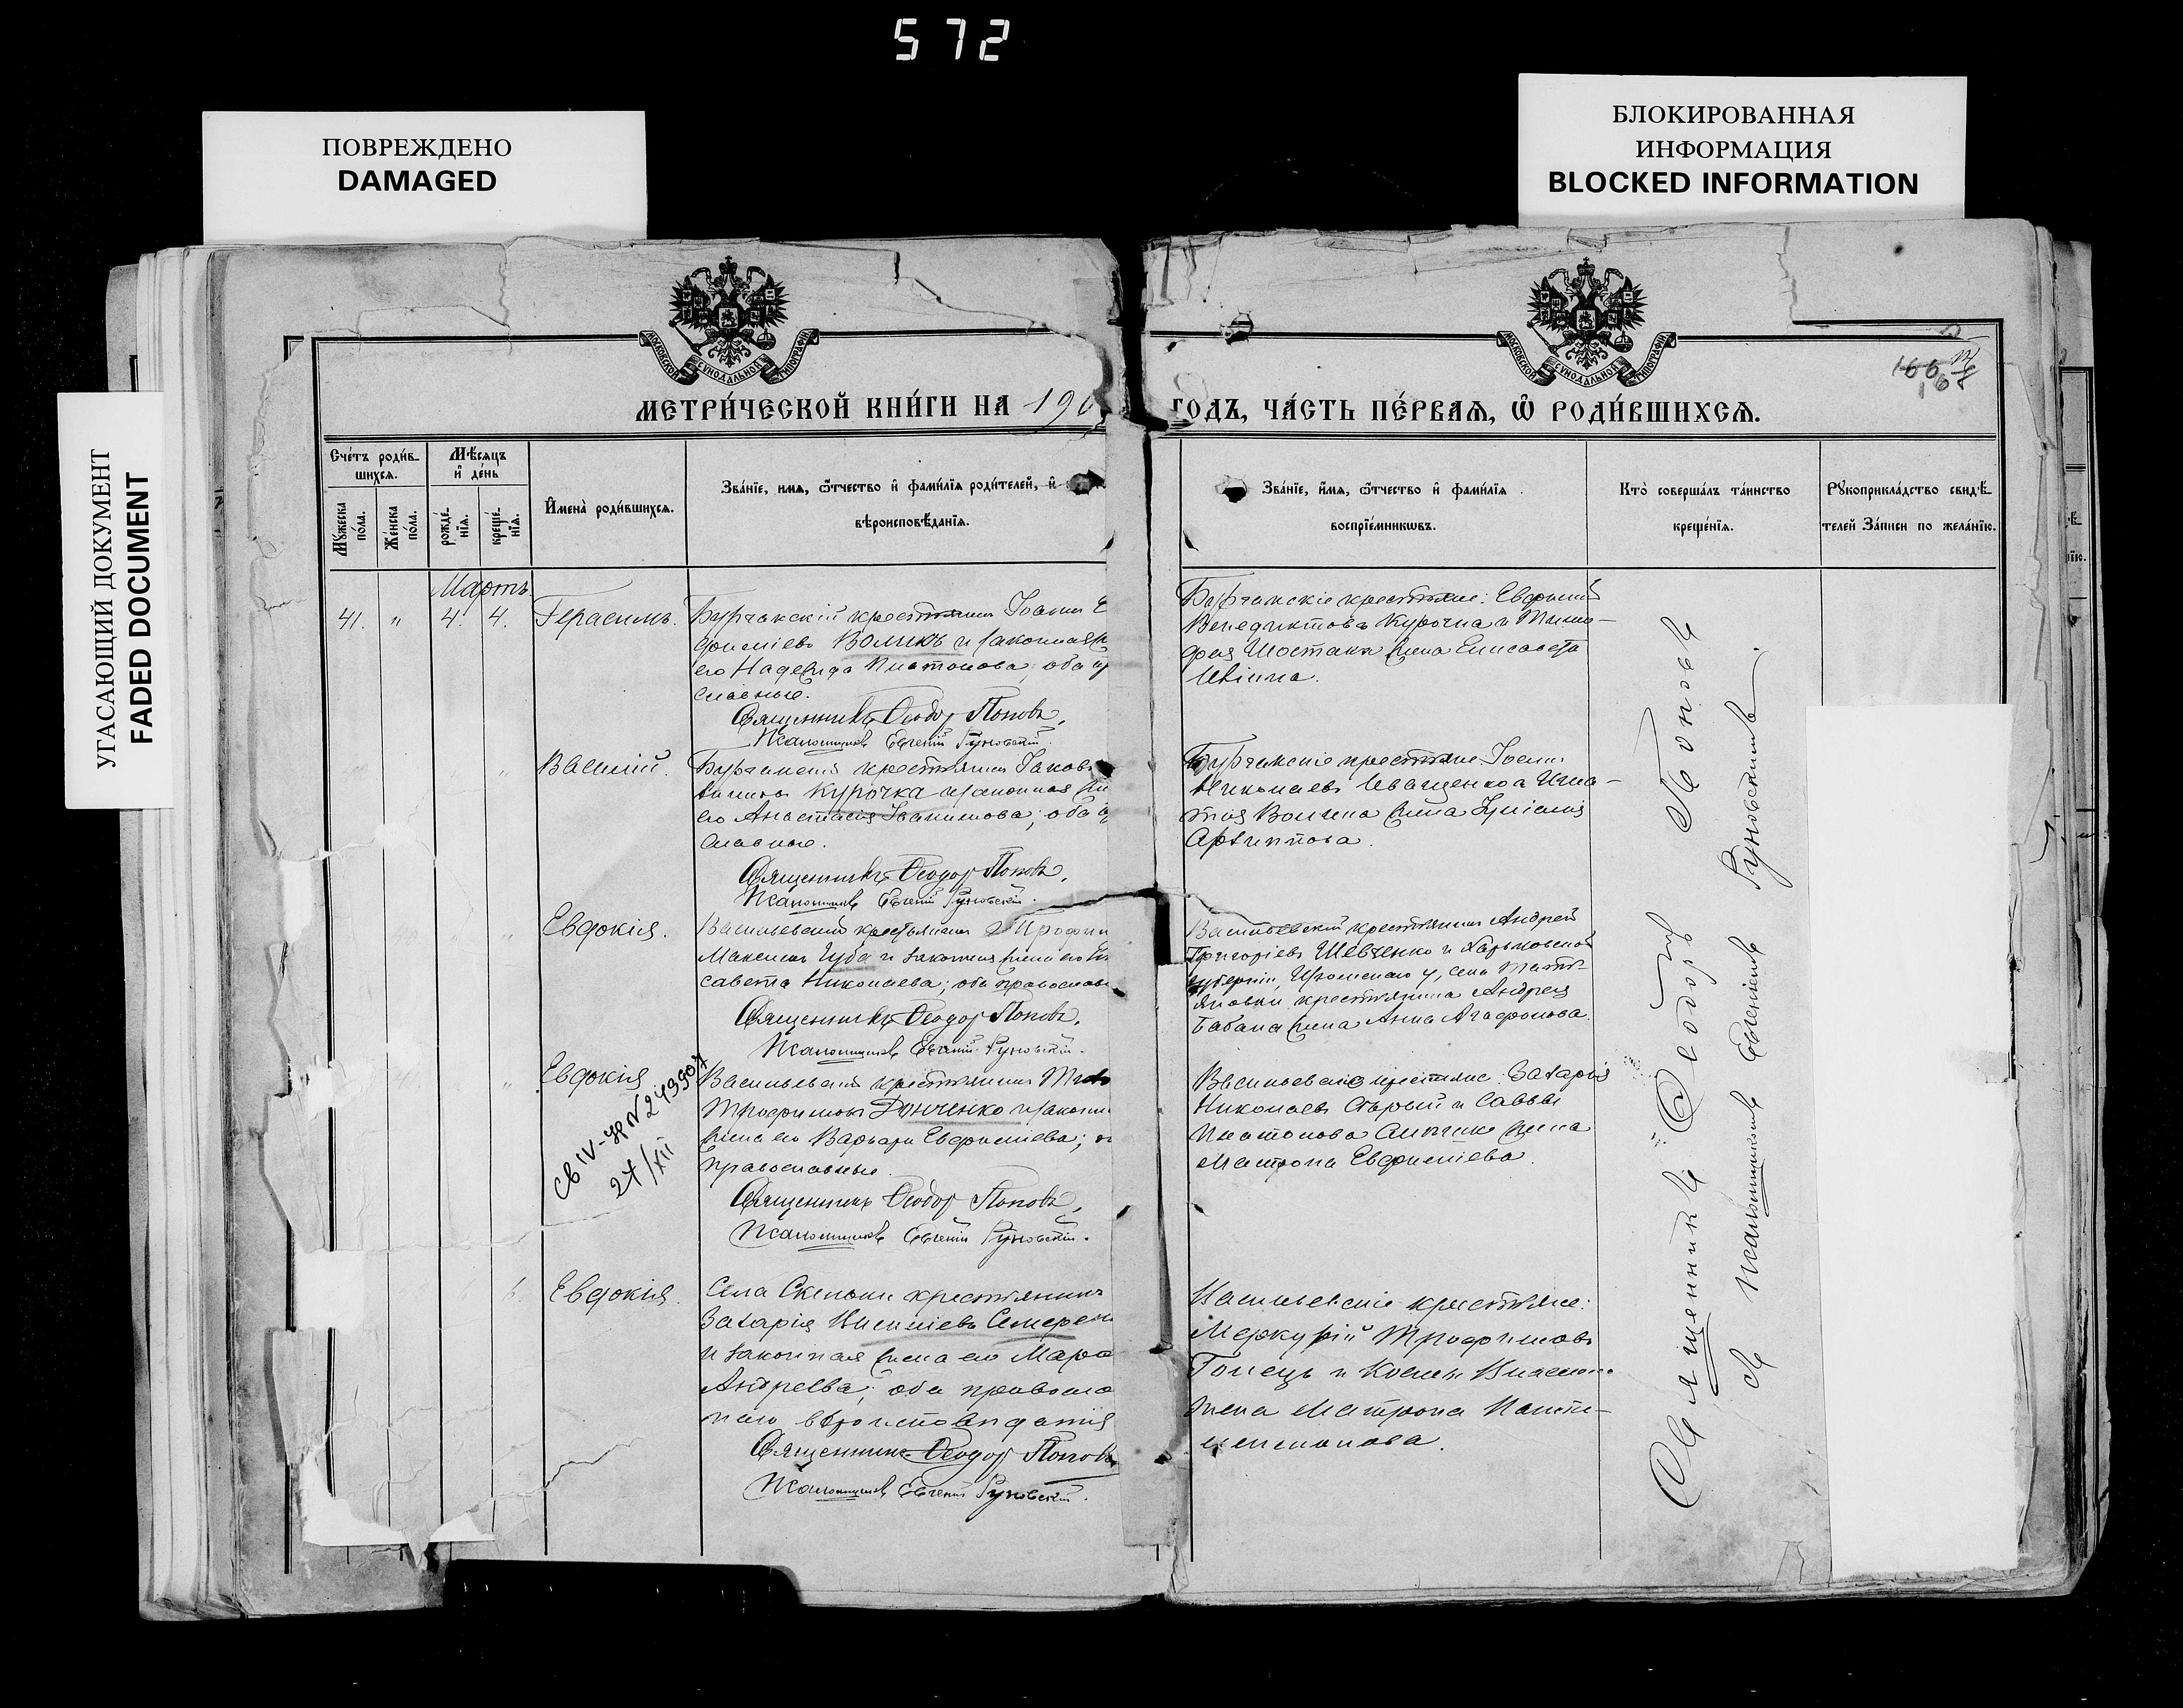 572
ПОВРЕЖДЕНО
DAMAGED
БЛОКИРОВАННАЯ
ИНФОРМАЦИЯ
BLOCKED INFORMATION
УГАСАЮЩИЙ ДОКУМЕНТ
FADED DOCUMENT
МОСКОВСКОЙ СѴНОДАЛЬНОЙ ТИПОГРАФІИ
МОСКОВСКОЙ СѴНОДАЛЬНОЙ ТИПОГРАФІИ
168
МЕТРИ́ЧЕСКОЙ КНИ́ГИ НА 190
ГОДЪ, ЧА́СТЬ ПЕ́РВАЯ, Ѿ РОДИ́ВШИХСЯ.
Сче́тъ роди́в-
шихся.
Мꙋ́жеска по́ла.
Же́нска по́ла.
Мѣ́сяцъ
и҆ де́нь
рожде́-
нїя.
креще́-
нїя.
И҆мена̀ роди́вшихся.
Зва́нїе, имя, ѻ҆́тчество и҆ фами́лїя роди́телей, и҆
вѣроисповѣ́данїя.
Зва́нїе, и҆́мя, ѻ҆́тчество и҆ фами́лїя
воспрїе́мникѡвъ.
Кто̀ соверша́лъ та́инство
креще́нїя.
Рꙋкоприкла́дство свидѣ́-
телей За́писи по жела́нїю.
Мартъ
41. " 4. 4. Герасимъ.
Бурчакскій крестьянинъ Іоаннъ Е
фиміевъ Воликъ и законная
его Надежда Платонова; оба п
славные.
Священникъ Ѳеодоръ Поповъ,
Псаломщикъ Евгеній Руновскій.
Бурчакскіе крестьяне: Евфимій
Венедиктовъ Курочка и Тимо-
фея Шостака жена Елисавета
Василій.
Бурчакскій крестьянинъ Іаковъ
Курочка и законная
его Анастасія Іоакимова; оба п
славные.
Священникъ Ѳеодоръ Поповъ,
Псаломщикъ Евгеній Руновскій.
Бурчакскіе крестьяне Іоаннъ
Николаевъ Иващенко и Игна-
тія Волика жена Іуліанія
Архиппова.
Евдокія.
Васильевскій крестьянинъ Трофим
Максимовъ Чуба и законная жена его Ели
савета Николаева; оба православн
Священникъ Ѳеодоръ Поповъ.
Псаломщикъ Евгеній Руновскій.
Васильевскій крестьянинъ Андрей
Григоріевъ Шевченко и Харьковской
губерніи, у, села Тать-
яновки крестьянина Андрея
Бабака жена Анна Агафонова.
Евдокія
Св IV-ЯР N 249507
24/XII
Васильевскій крестьянинъ
Трофимовъ Донченко и законн
жена его Варвара Евфиміева; о
православные.
Священникъ Ѳеодоръ Поповъ,
Псаломщикъ Евгеній Руновскій.
Васильевскіе крестьяне: Захарій
Николаевъ Старый и Саввы
Платонова жена
Матрона Евфиміева.
Евдокія.
Села Скельки крестьянинъ
Захарія Василіевъ Семерен
и законная жена его Марѳа
Андреева; оба правосла
наго вѣроисповѣданія
Священникъ Ѳеодоръ Поповъ
Псаломщикъ Евгеній Руновскій.
Васильевскіе крестьяне:
Меркурій Трофимовъ
Гонецъ и Космы
жена Матрона Панте-
леимонова.
Священникъ Ѳеодоръ Поповъ
съ псаломщикомъ Евгеніемъ Руновскимъ.